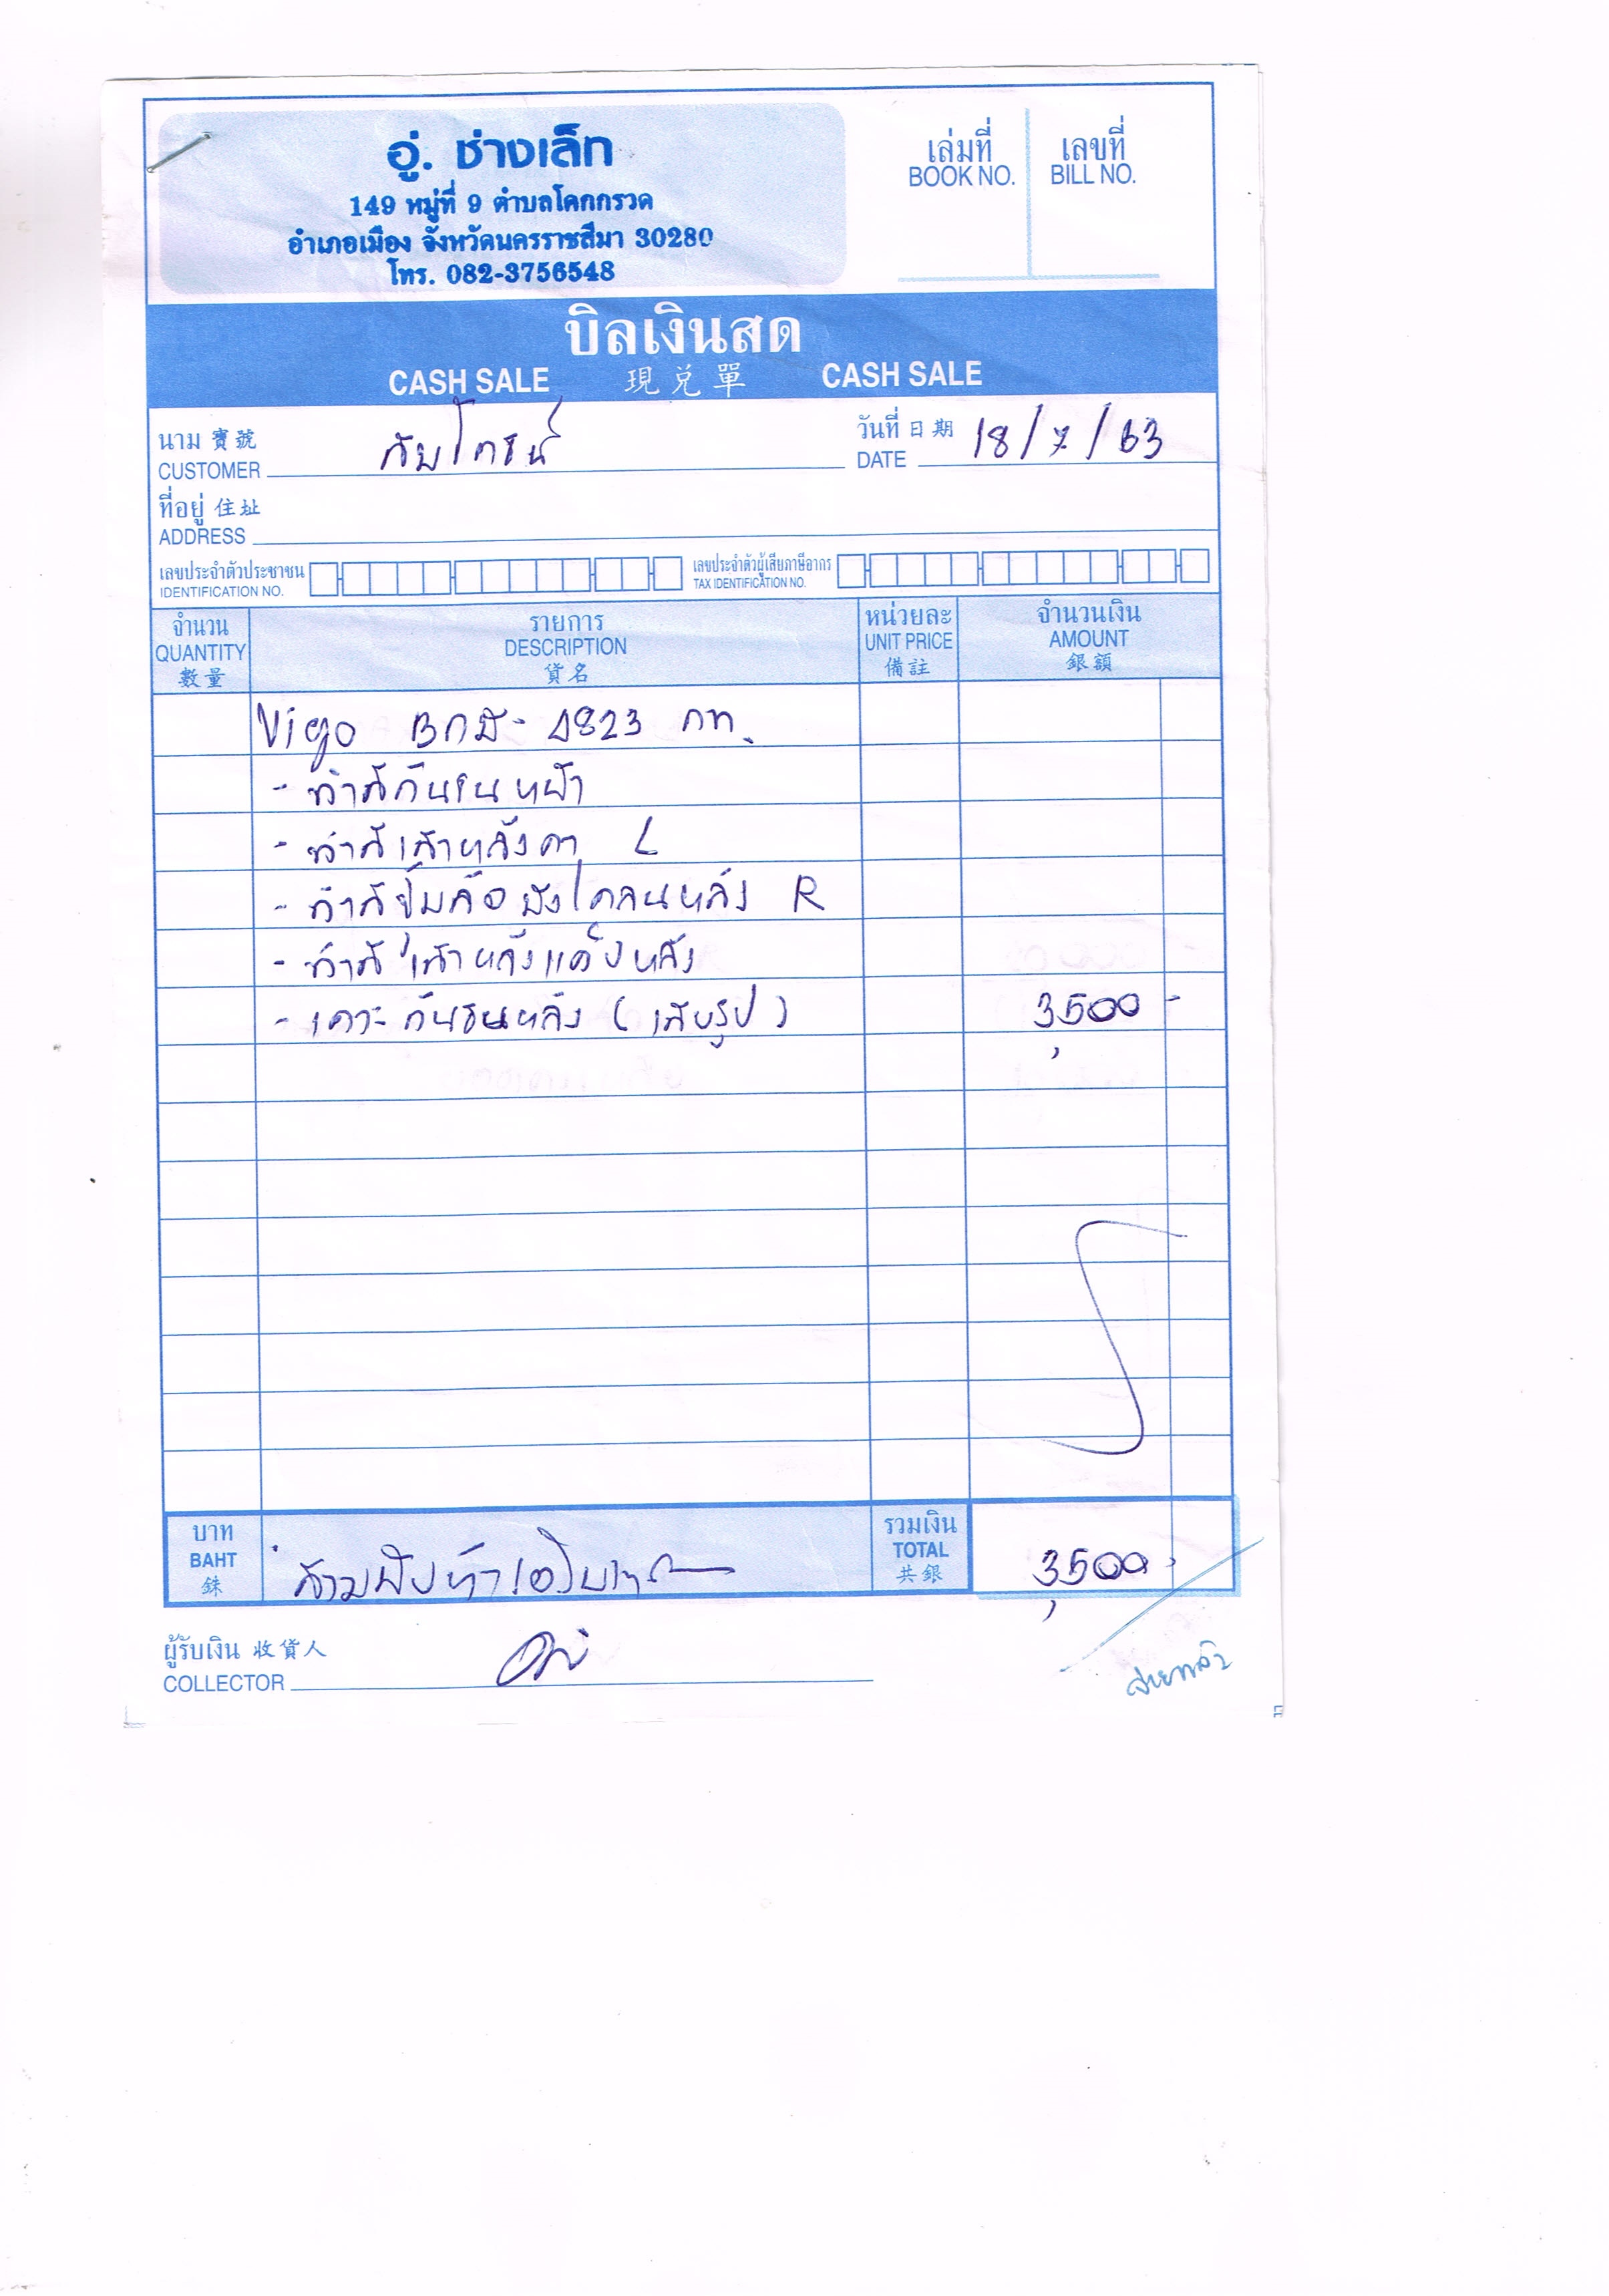 อู่. ช่างเล็ก
149 หมู่ที่ 9 ตำบลโคกกรวด
อำเภอเมือง จังหวัดนครราชสีมา 30280
โทร. 082-3756548
เล่มที่ เลขที่
BOOK NO. BILL NO.
บิลเงินสด
CASH SALE 現兌單 CASH SALE
นาม 寶號 วันที่ 日期 18/7/63
CUSTOMER DATE
ที่อยู่ 住址
ADDRESS
เลขประจำตัวประชาชน เลขประจำตัวผู้เสียภาษีอากร
IDENTIFICATION NO. TAX IDENTIFICATION NO.
จำนวน รายการ หน่วยละ จำนวนเงิน
QUANTITY DESCRIPTION UNIT PRICE AMOUNT
數量 貨名 備註 銀額
Vigo 3กมี- 1823 กท.
- ทำสีกันชนหน้า
- ทำสีเสาหลังคา L
- ทำสีซุ้มล้อบังโคลนหลัง R
- ทำสี
- เคาะกันชนหลัง (เสียรูป) 3,500 -
บาท สามพันห้าร้อยบาท รวมเงิน
BAHT TOTAL 3,500 -
銖 共銀
ผู้รับเงิน 收貨人
COLLECTOR